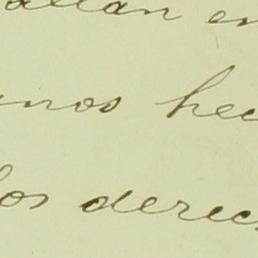 allan en
nos hec
los derec